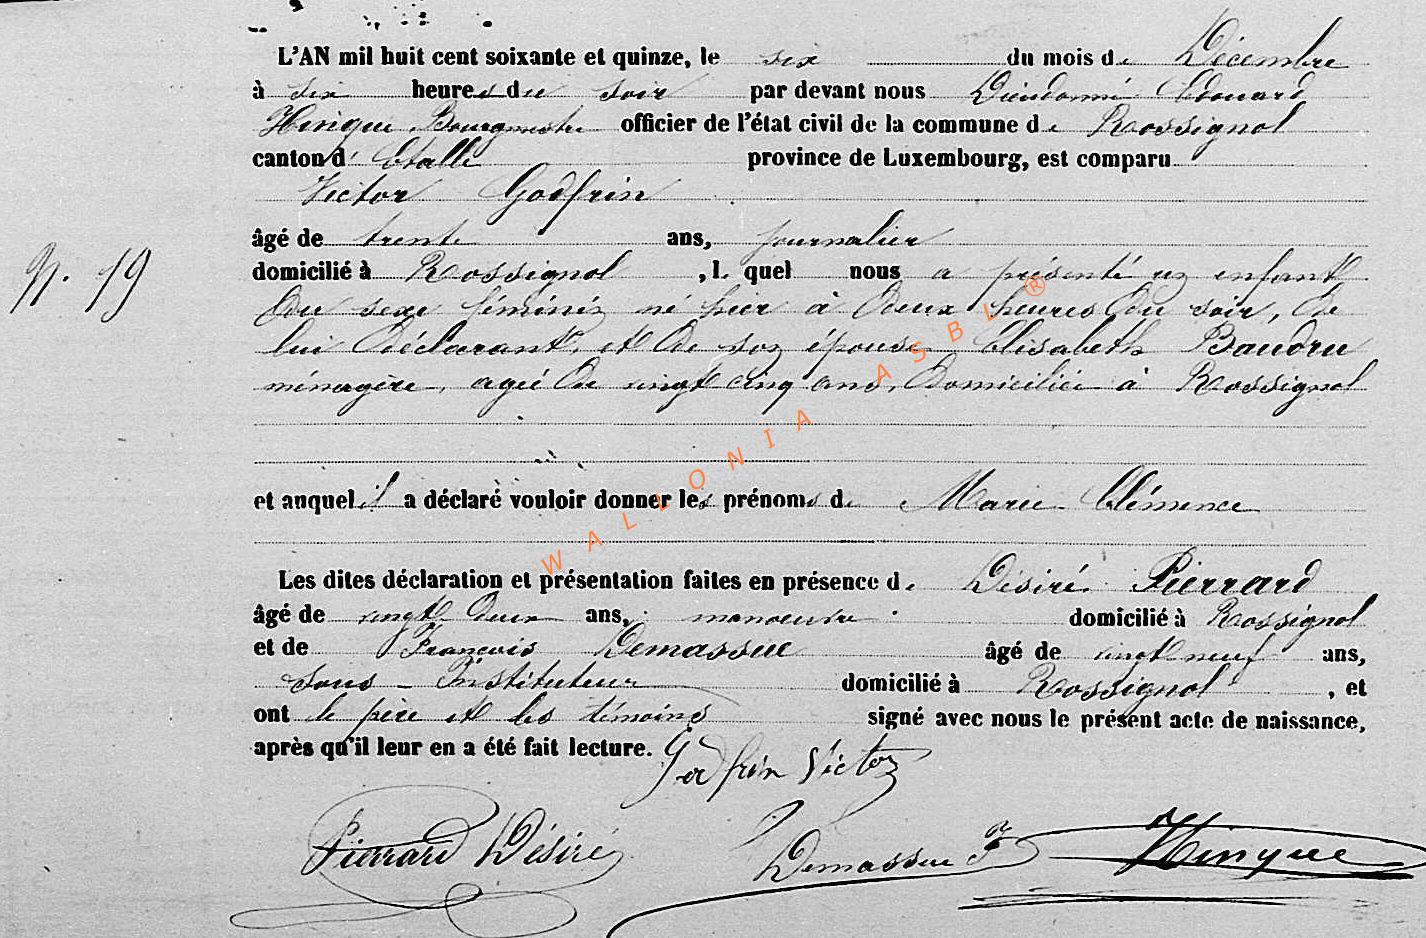 L'AN mil huit cent soixante et quinze, le six du mois de Décembre
à six heures du soir par devant nous Dieudonné Edouard
Hinque Bourgmestre officier de l'état civil de la commune de Rossignol
canton d' Etalle province de Luxembourg, est comparu
Victor Godfrin
âgé de trente ans, journalier
domicilié à Rossignol, lequel nous a présenté un enfant
N. 19
du sexe féminin né hier à deux heures du soir, de
lui déclarant, et de son épouse Elisabeth Baudru
ménagère, agée de vingt cinq ans, domiciliée à Rossignol
et auquel il a déclaré vouloir donner les prénoms de Marie Clémence
Les dites déclaration et présentation faites en présence de Désiré Pierrard
âgé de vingt deux ans, manoeuvre domicilié à Rossignol
et de François Demassue âgé de vingt neuf ans,
sous-Instituteur domicilié à Rossignol, et
ont le père et les témoins signé avec nous le présent acte de naissance,
après qu'il leur en a été fait lecture. Godfrin Victor
Pierrard Désiré Demassue F Hinque
WALLONIA ASBL ®